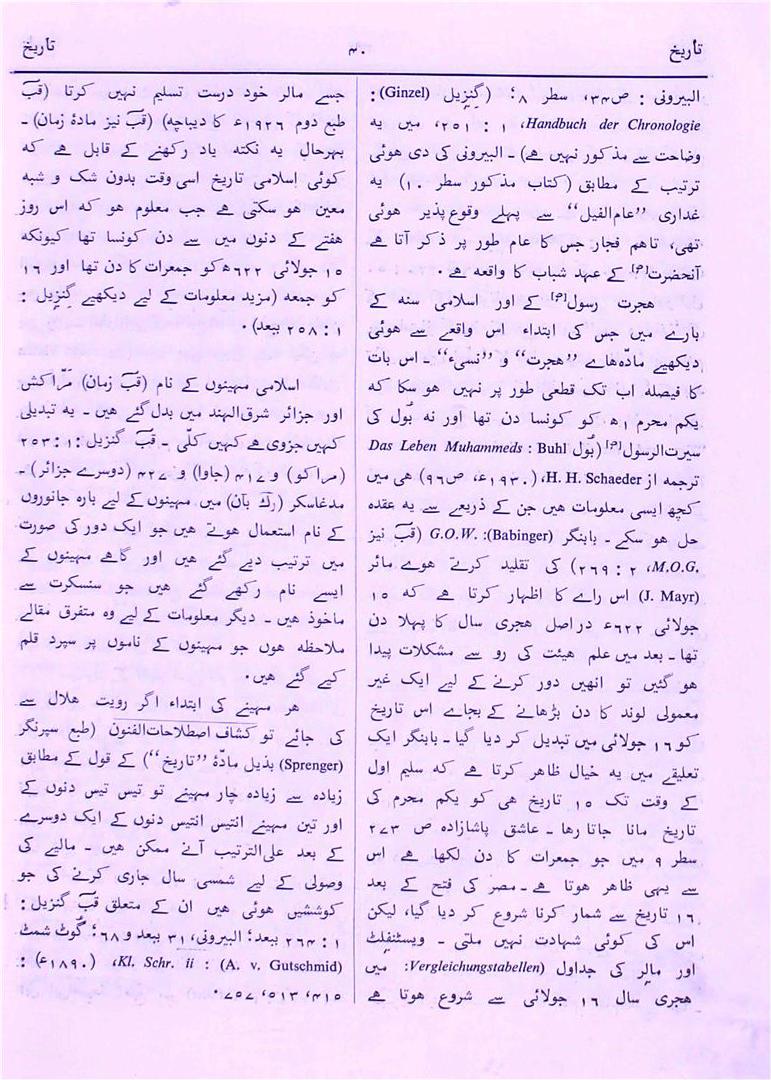 تاریخ
۴۰
تاریخ
البیرونی : ص۳۴، سطر ۸؛ (گنزیل (Ginzel) :
Handbuch der Chronologie، ۱ : ۲۵۱، میں یہ
وضاحت سے مذکور نہیں ہے) ۔ البیرونی کی دی ہوئی
ترتیب کے مطابق (کتاب مذکور سطر ۱۰) یہ
غداری ’’عام‌الفیل‘‘ سے پہلے وقوع پذیر ہوئی
تھی، تاہم فجار جس کا عام طور پر ذکر آتا ہے
آنحضرت[ؐ] کے عہد شباب کا واقعہ ہے ۔
ہجرت رسول[ؐ] کے اور اسلامی سنہ کے
بارے میں جس کی ابتداء اس واقعے سے ہوئی
دیکھیے مادّہ‌ھاے ’’ہجرت‘‘ و ’’نسیء‘‘ ۔ اس بات
کا فیصلہ اب تک قطعی طور پر نہیں ہو سکا کہ
یکم محرم ۱ھ کو کونسا دن تھا اور نہ بُول کی
سیرت‌الرسول[ؐ] (بُول Das Leben Muhammeds : Buhl
ترجمہ از H. H. Schaeder، (۱۹۳۰ء، ص۹۶) ھی میں
کچھ ایسی معلومات ہیں جن کے ذریعے سے یہ عقدہ
حل ہو سکے ۔ بابنگر (Babinger): G.O.W. (قبَ نیز
M.O.G.، ۲ : ۲۶۹) کی تقلید کرتے ہوے مائر
(J. Mayr) اس راے کا اظہار کرتا ہے کہ ۱۵
جولائی ۶۲۲ء در اصل ہجری سال کا پہلا دن
تھا ۔ بعد میں علم ہیئت کی رو سے مشکلات پیدا
ہو گئیں تو انھیں دور کرنے کے لیے ایک غیر
معمولی لوند کا دن بڑھانے کے بجاے اس تاریخ
کو ۱۶ جولائی میں تبدیل کر دیا گیا ۔ بابنگر ایک
تعلیقے میں یہ خیال ظاہر کرتا ہے کہ سلیم اول
کے وقت تک ۱۵ تاریخ ھی کو یکم محرم کی
تاریخ مانا جاتا رہا ۔ عاشق پاشازادہ ص ۲۷۳
سطر ۹ میں جو جمعرات کا دن لکھا ہے اس
سے یہی ظاہر ہوتا ہے ۔ مصر کی فتح کے بعد
۱۶ تاریخ سے شمار کرنا شروع کر دیا گیا، لیکن
اس کی کوئی شہادت نہیں ملتی ۔ ویسٹنفلٹ
اور مالر کی جداول (Vergleichungstabellen: میں
ہجری سال ۱۶ جولائی سے شروع ہوتا ہے
جسے مالر خود درست تسلیم نہیں کرتا (قبَ
طبع دوم ۱۹۲۶ء کا دیباچہ) (قبَ نیز مادۂ زمان) ۔
بہرحال یہ نکتہ یاد رکھنے کے قابل ہے کہ
کوئی اسلامی تاریخ اسی وقت بدون شک و شبہ
معین ہو سکتی ہے جب معلوم ہو کہ اس روز
ہفتے کے دنوں میں سے دن کونسا تھا کیونکہ
۱۵ جولائی ۶۲۲ھ کو جمعرات کا دن تھا اور ۱۶
کو جمعہ (مزید معلومات کے لیے دیکھیے گنزیل :
۱ : ۲۵۸ ببعد) ۔
اسلامی مہینوں کے نام (قبَ زمان) مرّاکش
اور جزائر شرق‌الہند میں بدل گئے ہیں ۔ یہ تبدیلی
کہیں جزوی ہے کہیں کلّی ۔ قبَ گنزیل : ۱ : ۲۵۳
(مراکو) و ۴۱۷ (جاوا) و ۴۲۷ (دوسرے جزائر) ۔
مدغاسکر (رکَ بآن) میں مہینوں کے لیے بارہ جانوروں
کے نام استعمال ہوتے ہیں جو ایک دور کی صورت
میں ترتیب دیے گئے ہیں اور گاہے مہینوں کے
ایسے نام رکھے گئے ہیں جو سنسکرت سے
ماخوذ ہیں ۔ دیگر معلومات کے لیے وہ متفرق مقالے
ملاحظہ ہوں جو مہینوں کے ناموں پر سپرد قلم
کیے گئے ہیں ۔
ہر مہینے کی ابتداء اگر رویت ہلال سے
کی جائے تو کشاف اصطلاحات‌الفنون (طبع سپرنگر
(Sprenger) بذیل مادّۂ ’’تاریخ‘‘) کے قول کے مطابق
زیادہ سے زیادہ چار مہینے تو تیس تیس دنوں کے
اور تین مہینے انتیس انتیس دنوں کے ایک دوسرے
کے بعد علی‌الترتیب آنے ممکن ہیں ۔ مالیے کی
وصولی کے لیے شمسی سال جاری کرنے کی جو
کوششیں ہوئی ہیں ان کے متعلق قبَ گنزیل :
۱ : ۲۶۴ ببعد؛ البیرونی، ۳۱ ببعد و ۶۸؛ گوٹ شمٹ
(A. v. Gutschmid) : Kl. Schr. ii، (۱۸۹۰ء) :
۴۱۵، ۵۱۳، ۷۵۷ ۔